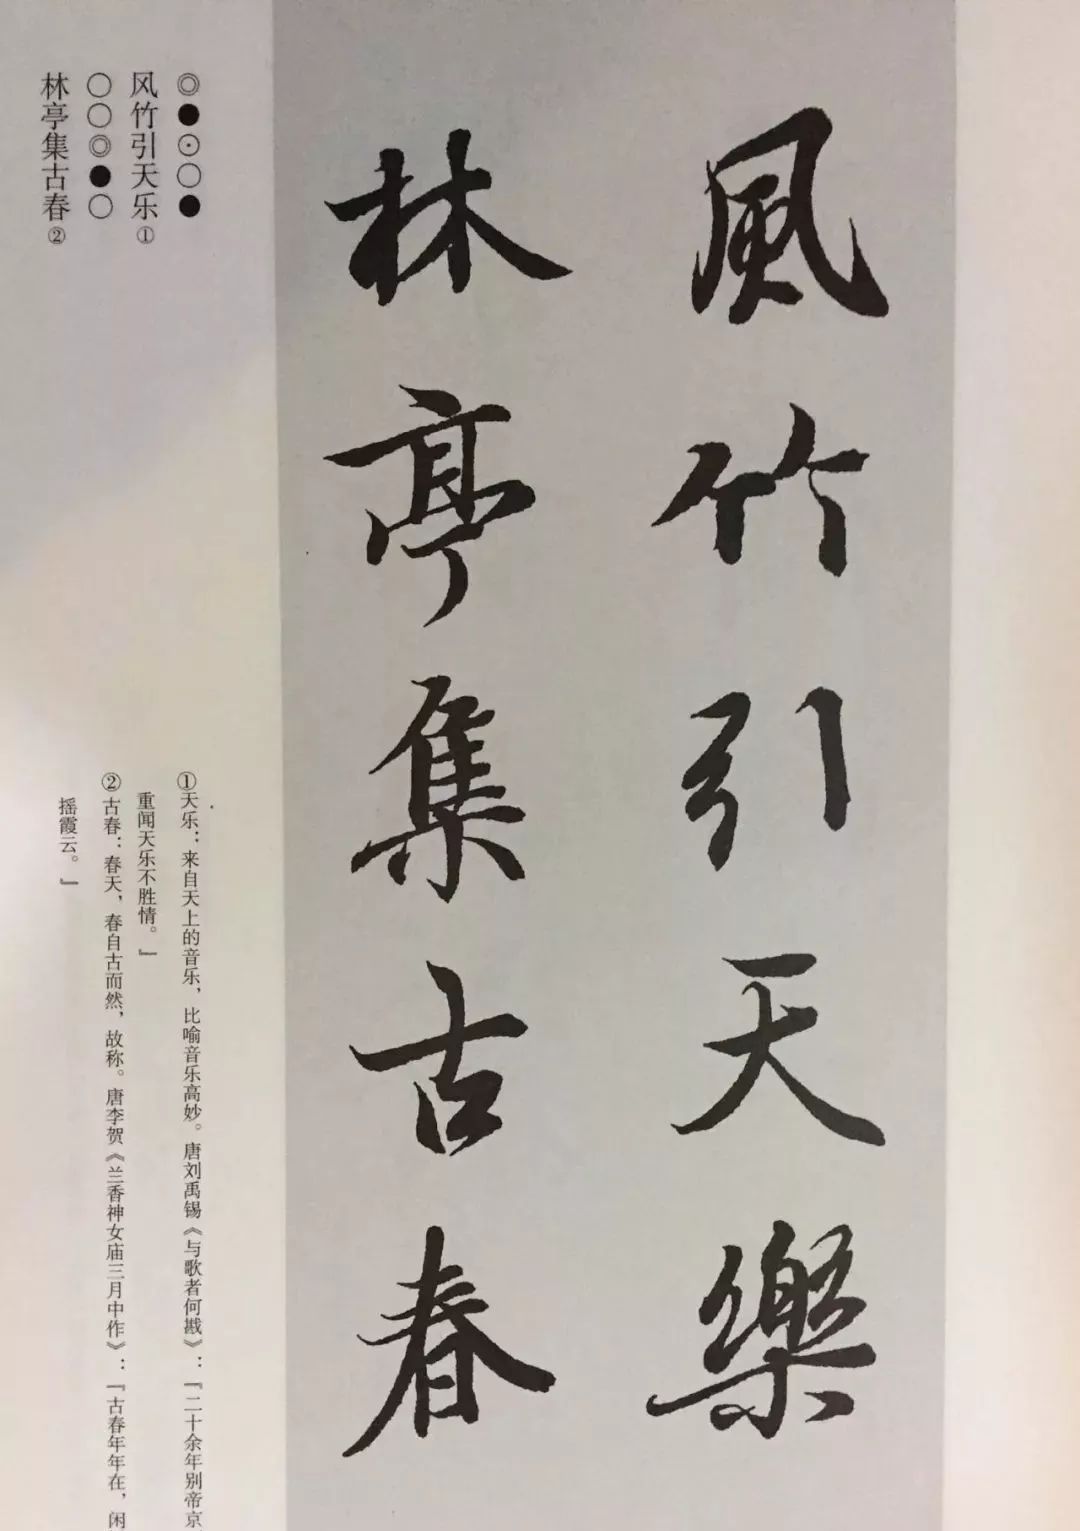 風竹引天樂
林亭集古春
◎●⊙○●
风竹引天乐①
○○◎●○
林亭集古春②
①天乐：来自天上的音乐，比喻音乐高妙。唐刘禹锡《与歌者何戡》：『二十余年别帝京
重闻天乐不胜情。』
②古春：春天，春自古而然，故称。唐李贺《兰香神女庙三月中作》：『古春年年在，闲
摇霞云。』